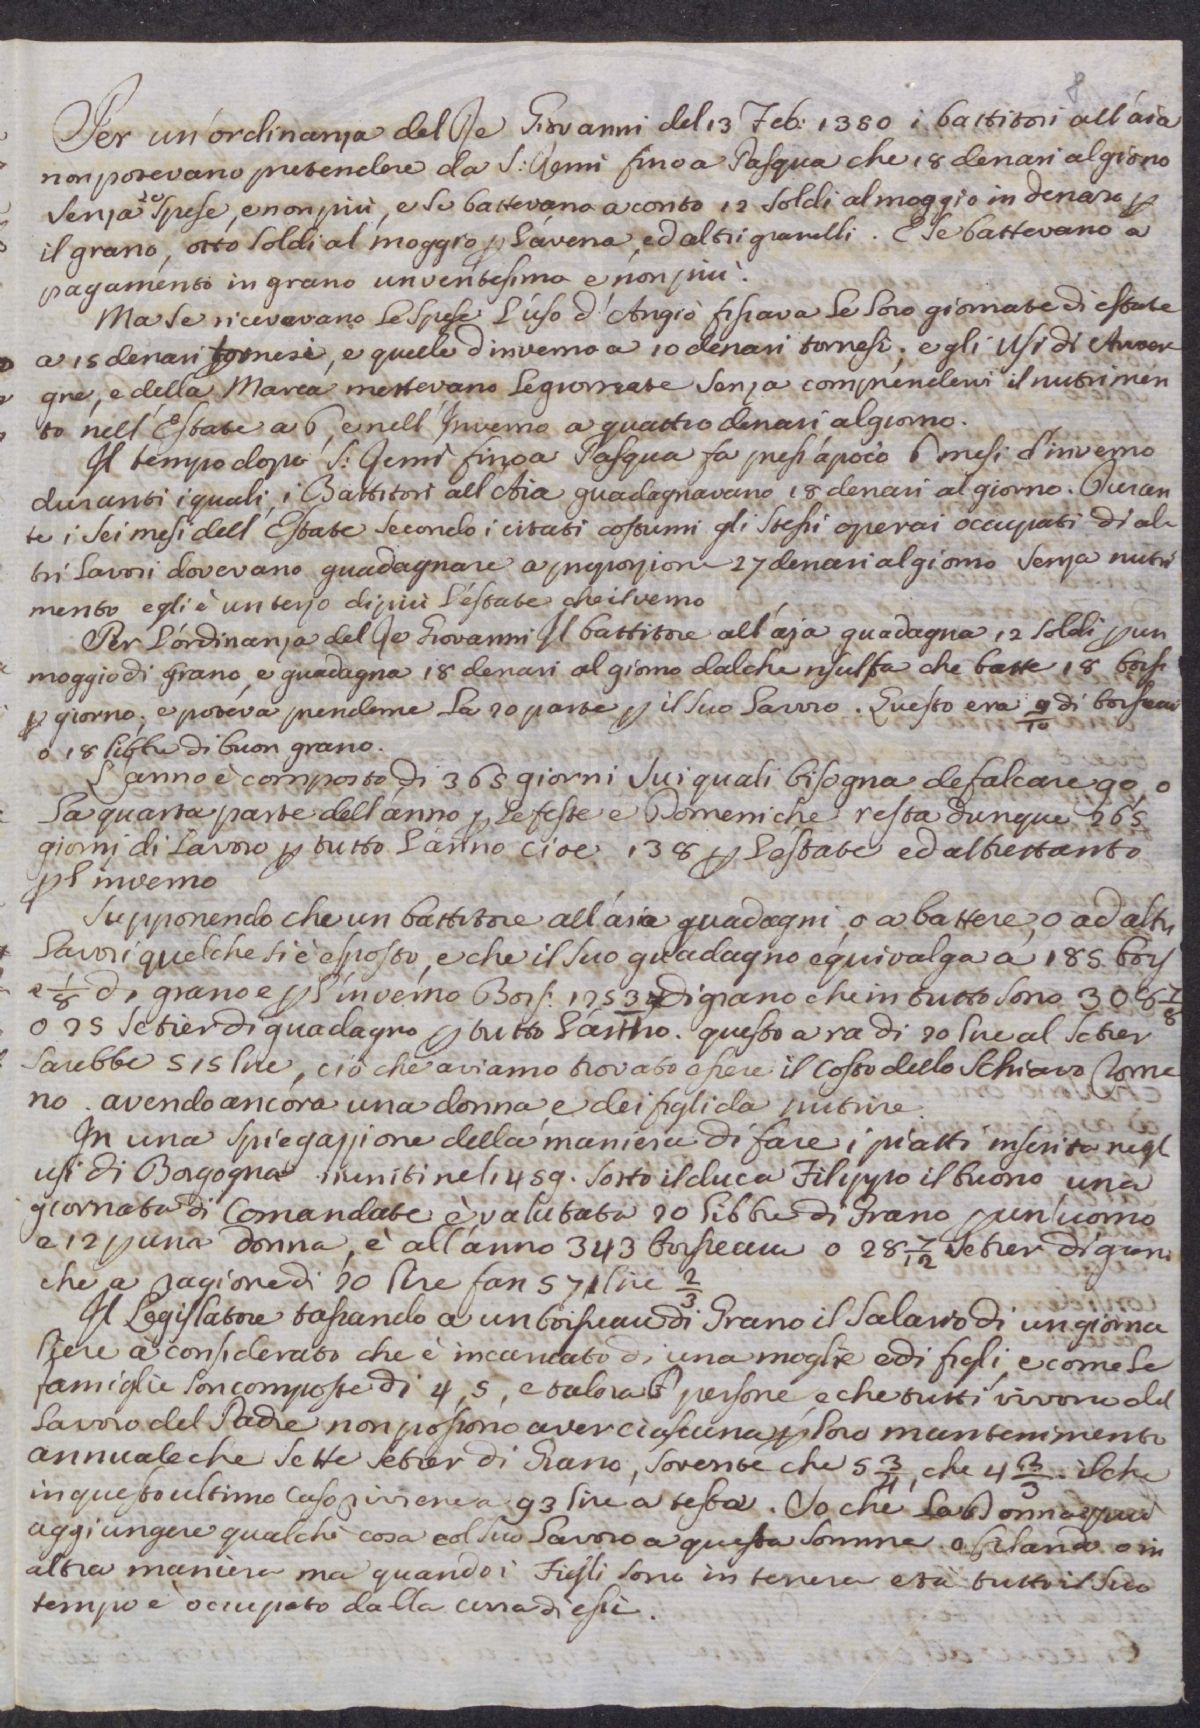 8
Per un'ordinanza del Re Giovanni del 13 Feb: 1350 i battitori all'aia
non potevano pretendere da S: Remi fino a Pasqua che 18 denari al giorno
senza le Spese, e non più, e se battevano a conto 12 soldi al moggio in denaro p
il grano, otto soldi al moggio p l'avena, ed altri granelli. E se battevano a
pagamento in grano un ventesimo e non più.
Ma se ricevevano le Spese l'uso d'Angiò fissava le loro giornate di estate
a 15 denari tornesi, e quelle d'inverno a 10 denari tornesi; e gli Usi di Auver
gne, e della Marca mettevano le giornate senza comprendervi il nutrimen
to nell'Estate a 6, e nell'Inverno a quattro denari al giorno.
Il tempo dopo S: Remi fino a Pasqua fa presi àpoco 6 mesi d'inverno
duranti i quali, i Battitori all'Aia guadagnavano 18 denari al giorno. Duran
te i sei mesi dell'Estate secondo i citati costumi gli stessi operai occupati di al
tri lavori dovevano guadagnare a proporzione 27 denari al giorno senza nutri
mento egli è un terzo di più l'estate che ilverno
Per l'ordinanza del Re Giovanni Il battitore all'aja guadagna 12 soldi p un
moggio di grano, e guadagna 18 denari al giorno dalche risulta che batte 18 boiss
p giorno; e poteva prenderne la 20 parte p il suo lavoro. Questo era 9/10 di boisseau
o 18 libbre di buon grano.
L'anno è composto di 365 giorni sui quali bisogna defalcare 90, o
la quarta parte dell'anno p le feste e Domeniche resta dunque 265
giorni di lavoro p tutto l'anno cioe 138 p l'estate ed altrettanto
p l'inverno
Supponendo che un battitore all'aia guadagni, o a battere, o ad altri
lavori quel che si è esposto, e che il suo guadagno equivalga a 185 bois
e 1/8 di grano e p l'inverno Boiss: 125 3/4 di grano che in tutto sono 308 7/8
o 25 setier di guadagno p tutto l'anno. questo a ra di 20 lire al setier
sarebbe 515 lire, ciò che aviamo trovato essere il costo dello Schiavo Roma
no. avendo ancora una donna e dei figli da nutrire.
In una spiegazzione della maniera di fare i piatti inserita negl
usi di Borgogna riuniti nel 1459. sotto il duca Filippo il buono una
giornata di Comandate è valutata 20 libbre di Grano p un'uomo
e 12 p una donna, è all'anno 343 boisseau o 28 7/12 setier di gran
che a ragione di 20 lire fan 571 lire 2/3
Il Legislatore tassando a un boisseau di Grano il salario di un giorna
liere à considerato che è incaricato di una moglie e di figli, e come le
famiglie son composte di 4, 5, e talora 6 persone, e che tutti vivono del
lavoro del Padre non possono aver ciascuna p loro mantenimento
annuale che sette setier di Grano, sovente che 5 3/4, che 4 2/3. il che
in questo ultimo caso riviene a 93 lire a testa. So che la Donna può
aggiungere qualche cosa col suo lavoro a questa somma o filando o in
altra maniera ma quando i Figli sono in tenera età tutto il suo
tempo è occupato dalla cura di essi.